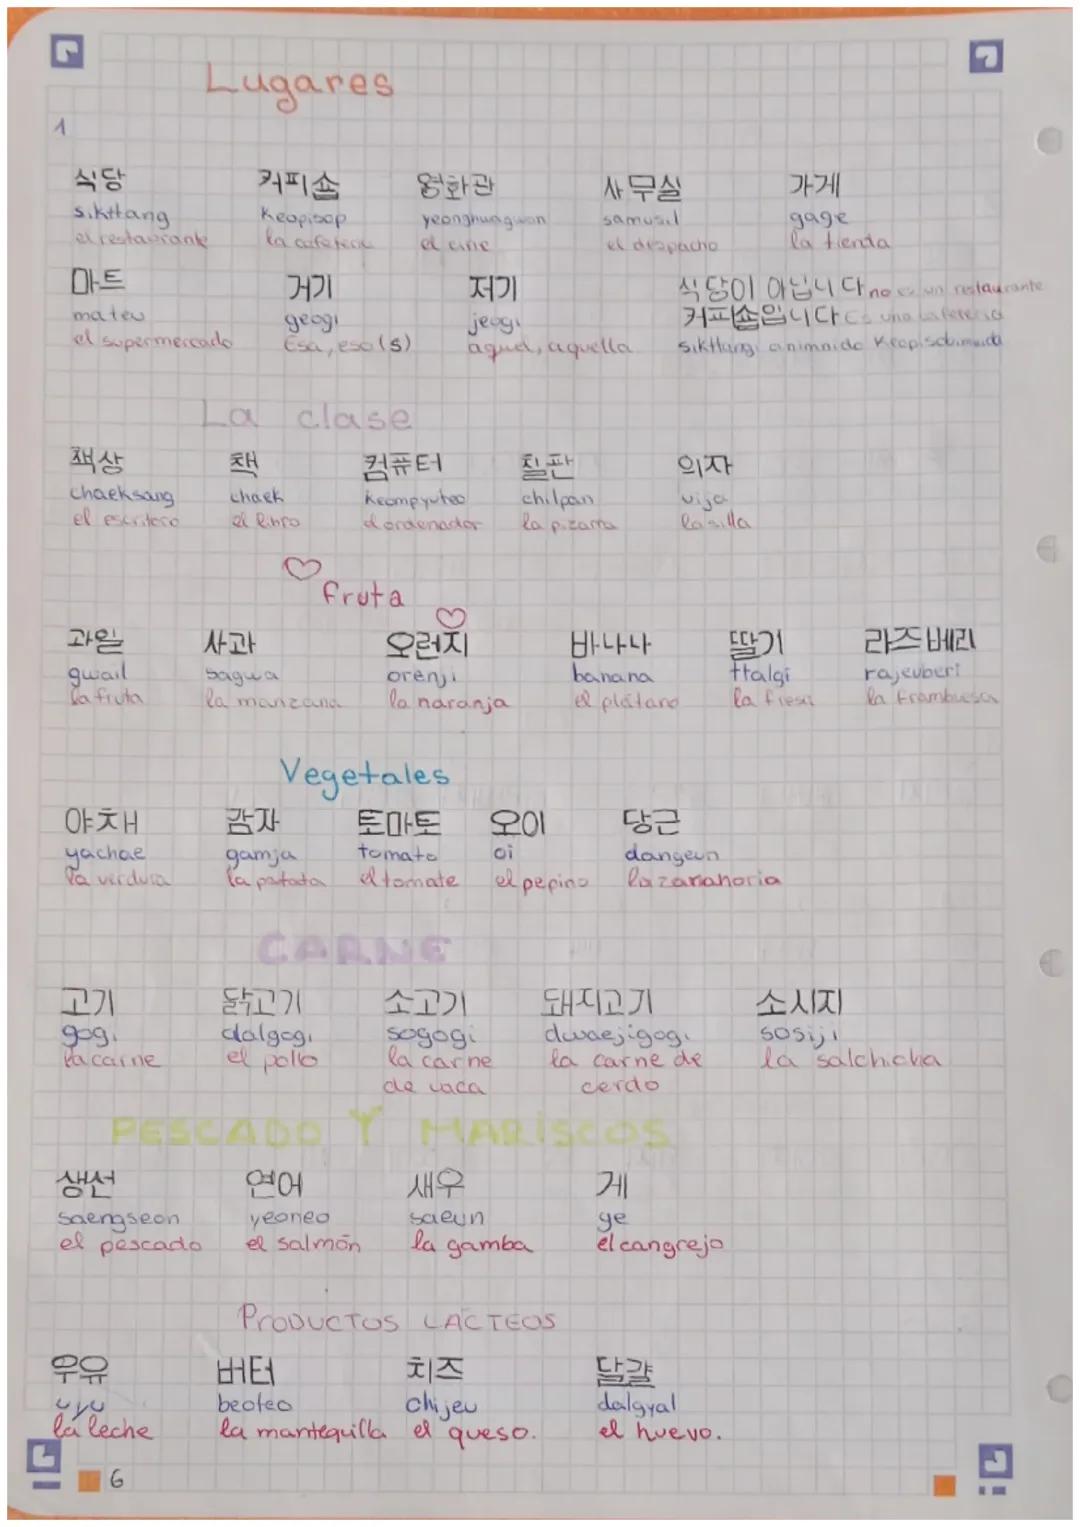 Lugares
1
식당 커피숍 영화관 사무실 가게
sikttang keopisop yeonghwagwan samusil gage
el restaurante la cafeteria el cine el despacho la tienda
마트 거기 저기 식당이 아닙니다 no es un restaurante
mateu geogi jeogi 커피숍입니다 Es una cafeteria
el supermercado Esa, eso(s) aquel, aquella sikttangi animnida keopisobimnida
La clase
책상 책 컴퓨터 칠판 의자
chaeksang chaek keompyuteo chilpan uija
el escritorio el libro el ordenador la pizarra la silla
fruta
과일 사과 오렌지 바나나 딸기 라즈베리
gwail sagwa orenji banana ttalgi rajeuberi
la fruta la manzana la naranja el plátano la fresa la frambuesa
Vegetales
야채 감자 토마토 오이 당근
yachae gamja tomato oi dangeun
la verdura la patata el tomate el pepino la zanahoria
CARNE
고기 닭고기 소고기 돼지고기 소시지
gogi dalgogi sogogi dwaejigogi sosiji
la carne el pollo la carne la carne de la salchicha
de vaca cerdo
PESCADO Y MARISCOS
생선 연어 새우 게
saengseon yeoneo saeun ge
el pescado el salmón la gamba el cangrejo
PRODUCTOS LÁCTEOS
우유 버터 치즈 달걀
uyu beoteo chijeu dalgyal
la leche la mantequilla el queso. el huevo.
6